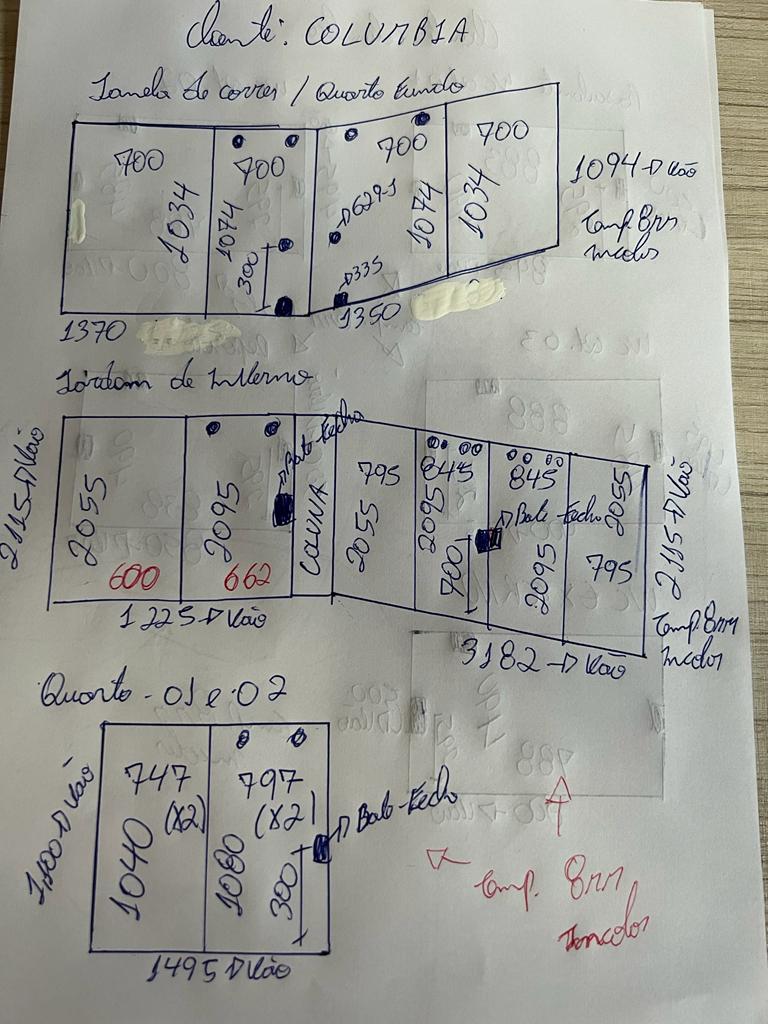 Cliente: COLUMBIA
Janela de correr / Quarto Fundo
700 700 700 700
1034 1074 1074 1034
300
D629-1
D335
1094 → Vão
Temp. 8mm
Incolor
1370 1350
Jardim de Inverno
2115 → Vão
2055 2095
Bate-Fecho
600 662
COLUNA
795 845 845
2055 2095 2095 2055
700
Bate-Fecho
795
2115 → Vão
1225 → Vão
3182 → Vão
Temp. 8mm
Incolor
Quarto - 01 e 02
1,100 → Vão
747 797
(X2) (X2)
1040 1080
300
Bate-Fecho
1495 → Vão
Temp. 8mm
Incolor